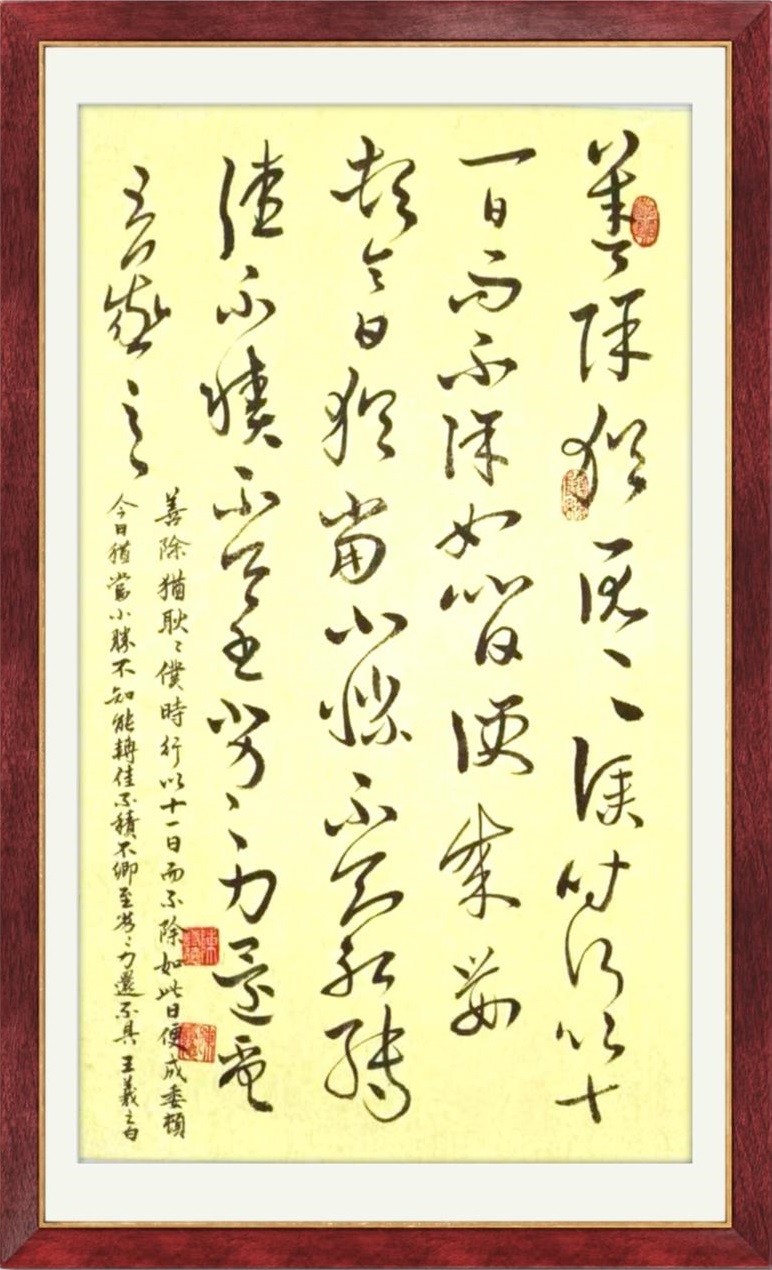 善除猶耿〻僕時行以十
一日而不除如此日便成委
頓今日猶當小勝不知能轉
佳不積不卿至勞〻力還不具
王羲之
善除猶耿〻僕時行以十一日而不除如此日便成委頓
今日猶當小勝不知能轉佳不積不卿至勞〻力還不具 王羲之白